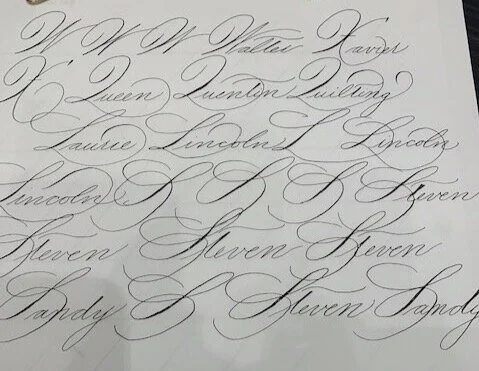 W W W Walter Xavier
X Queen Quentin Quilting
Laurie Lincoln L Lincoln
Lincoln S S S Steven
Steven Steven Steven
Sandy S Steven Sandy